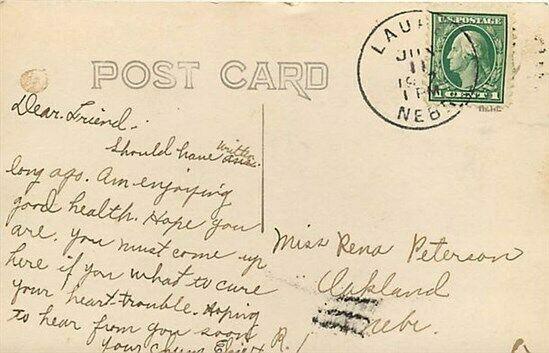 POST CARD
LAU
JUL
11
1 PM
NEBR
U.S. POSTAGE
1 CENT 1
Dear Friend:
Should have written
long ago. Am enjoying
good health. Hope you
are. You must come up
here if you what to cure
your heart-trouble. Hoping
to hear from you soon
Your
Miss Rena Peterson
Oakland
Nebr.
R. 1